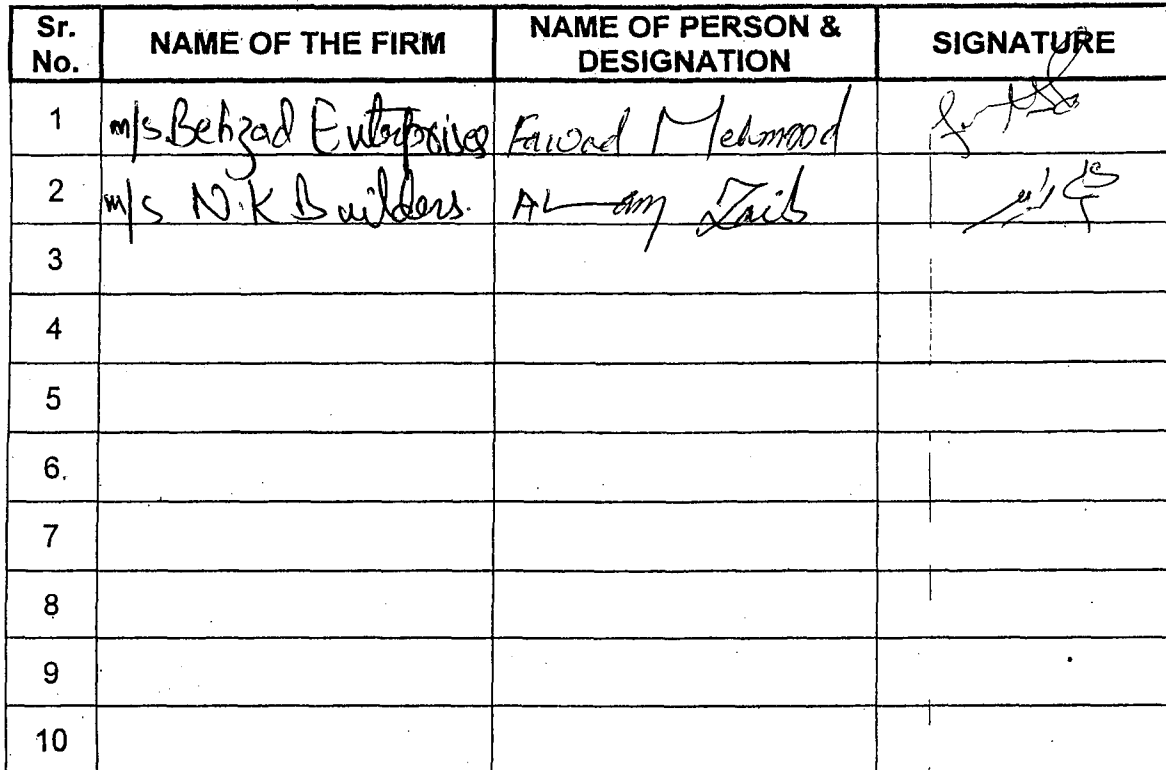 Sr. No. NAME OF THE FIRM NAME OF PERSON & DESIGNATION SIGNATURE
1 m/s.Behzad Enterprises Fawad Mehmood
2 m/s N.K Builders. Zaib
3
4
5
6
7
8
9
10